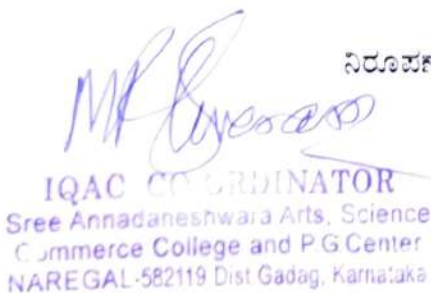 ನಿರೂಪಣ
IQAC CO-ORDINATOR
Sree Annadaneshwara Arts, Science
Commerce College and P.G Center
NAREGAL-582119 Dist.Gadag, Karnataka